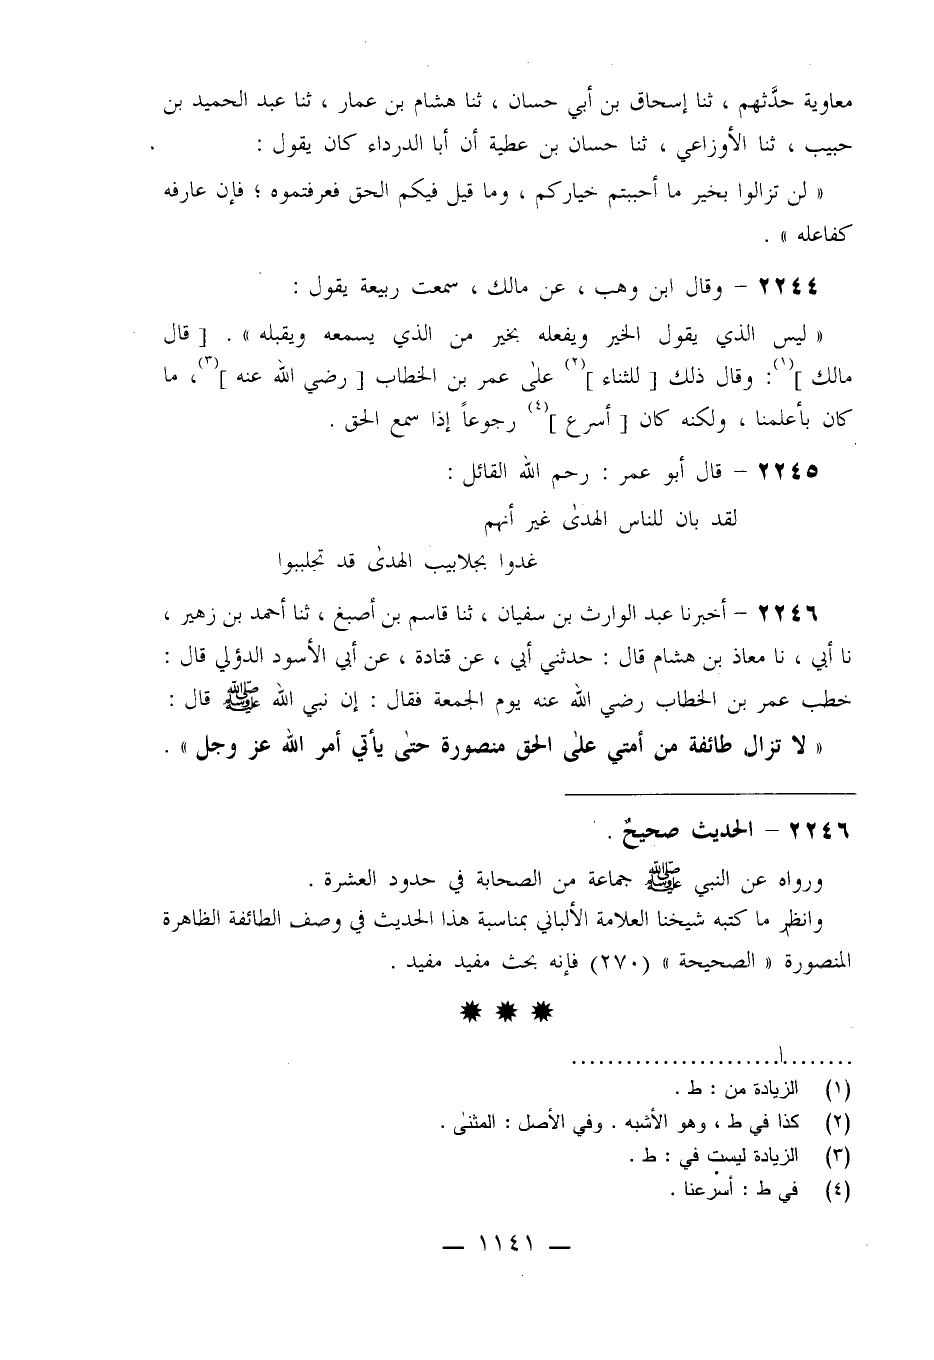 معاوية حدَّثهم ، ثنا إسحاق بن أبي حسان ، ثنا هشام بن عمار ، ثنا عبد الحميد بن
حبيب ، ثنا الأوزاعي ، ثنا حسان بن عطية أن أبا الدرداء كان يقول :
« لن تزالوا بخير ما أحببتم خياركم ، وما قيل فيكم الحق فعرفتموه ؛ فإن عارفه
كفاعله » .
٢٢٤٤ – وقال ابن وهب ، عن مالك ، سمعت ربيعة يقول :
« ليس الذي يقول الخير ويفعله بخير من الذي يسمعه ويقبله » . [ قال
مالك ](١): وقال ذلك [ للثناء ](٢) علىٰ عمر بن الخطاب [ رضي الله عنه ](٣)، ما
كان بأعلمنا ، ولكنه كان [ أسرع ](٤) رجوعاً إذا سمع الحق .
٢٢٤٥ – قال أبو عمر : رحم الله القائل :
لقد بان للناس الهدىٰ غير أنهم
غدوا بجلابيب الهدىٰ قد تجلببوا
٢٢٤٦ – أخبرنا عبد الوارث بن سفيان ، ثنا قاسم بن أصبغ ، ثنا أحمد بن زهير ،
نا أبي ، نا معاذ بن هشام قال : حدثني أبي ، عن قتادة ، عن أبي الأسود الدؤلي قال :
خطب عمر بن الخطاب رضي الله عنه يوم الجمعة فقال : إن نبي الله ﷺ قال :
« لا تزال طائفة من أمتي علىٰ الحق منصورة حتىٰ يأتي أمر الله عز وجل » .
٢٢٤٦ – الحديث صحيحٌ .
ورواه عن النبي ﷺ جماعة من الصحابة في حدود العشرة .
وانظر ما كتبه شيخنا العلامة الألباني بمناسبة هذا الحديث في وصف الطائفة الظاهرة
المنصورة « الصحيحة » (٢٧٠) فإنه بحث مفيد مفيد .
(١) الزيادة من : ط .
(٢) كذا في ط ، وهو الأشبه . وفي الأصل : المثنىٰ .
(٣) الزيادة ليست في : ط .
(٤) في ط : أسرعنا .
— ١١٤١ —